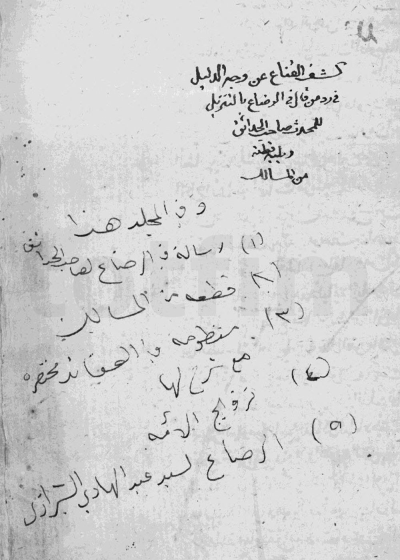 كشف القناع عن وجه الدليل
في رد من قال في الرضاع بالتنزيل
للمحدث صاحب الحدائق
ويليه قطعة
من المسالك
وفي المجلد هذا
(١) رسالة في الرضاع لصاحب الحدائق
(٢) قطعه من المسالك
(٣) منظومه في العقائد مختصره
مع شرح لها
(٤) تزويج الامه
(٥) الرضاع لسيد عبد الهادي الشيرازي